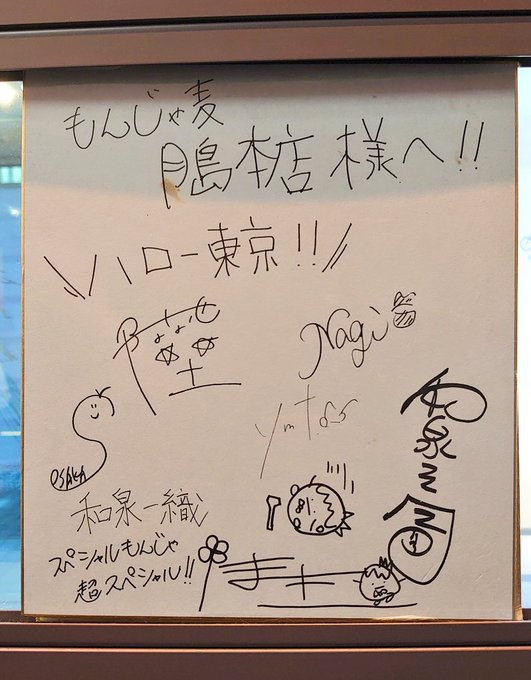 もんじゃ麦
月島本店様へ!!
\\ハロー東京!!//
Nagi
OSAKA
和泉一織
スペシャルもんじゃ
超スペシャル!!